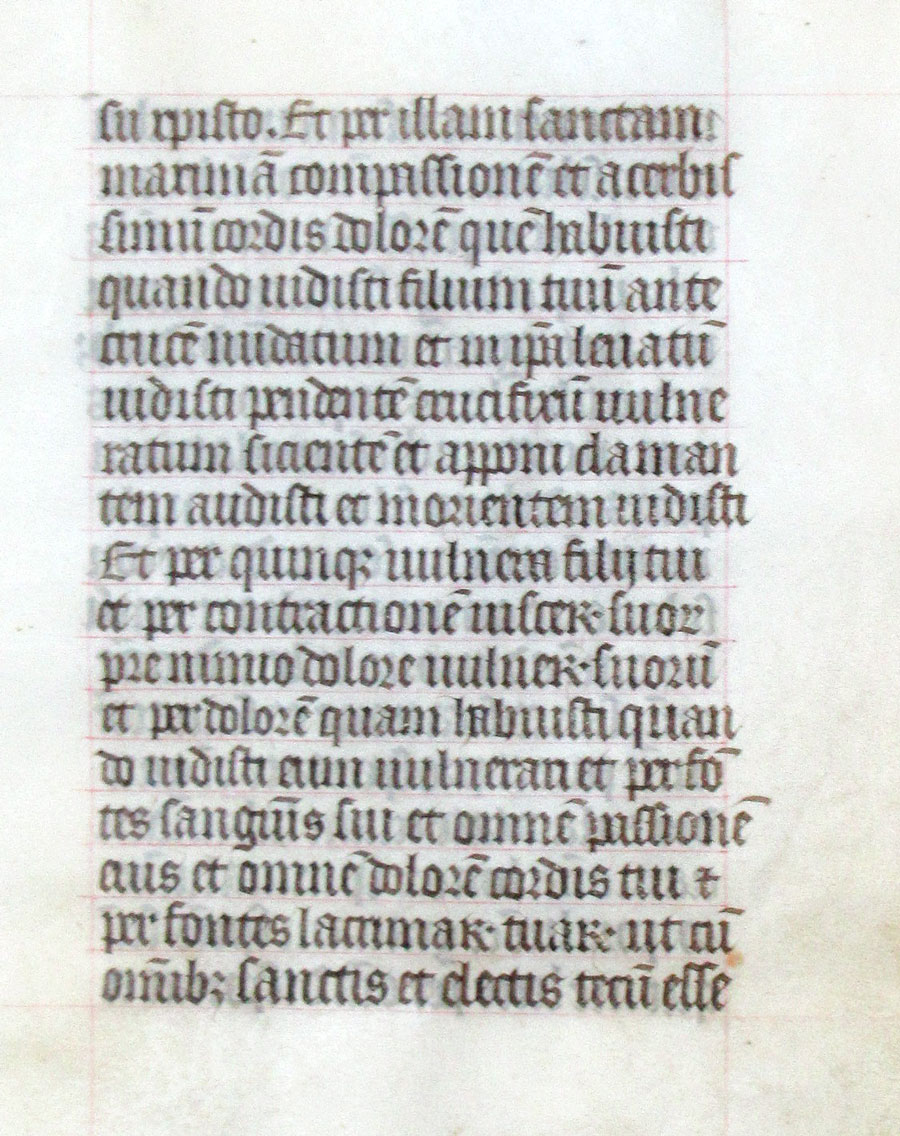 su xp̄isto. Et per illam sanctam
maximā compassionē et acerbis
simū cordis dolorē quē habuisti
quando uidisti filium tuū ante
crucē nudatum et in ip̄a leuatū
uidisti pendentē crucifixū uulne
ratum sicientē et apponi claman
tem audisti et morientem uidisti
Et per quinqꝫ uulnera filij tui
et per contractionē uisceꝝ suoꝝ
pre nimio dolore uulneꝝ suorū
et per dolorē quam habuisti quan
do uidisti eum uulnerari et per fō
tes sanguīs sui et omnē passionē
eius et omnē dolorē cordis tui ⁊
per fontes lacrimaꝝ tuaꝝ ut cū
om̄ibꝫ sanctis et electis tecū esse